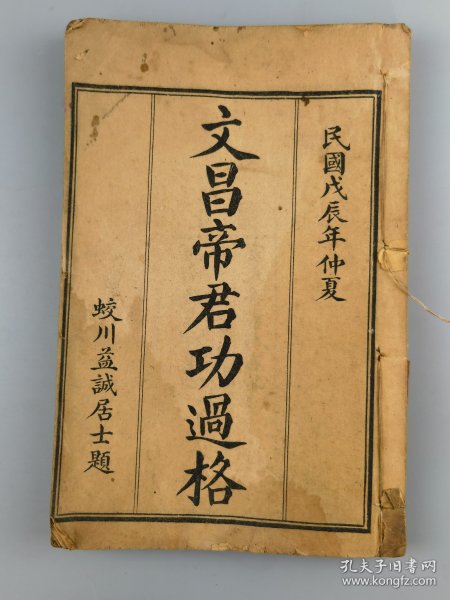 民國戊辰年仲夏
文昌帝君功過格
蛟川益誠居士題
孔夫子旧书网
www.kongfz.com